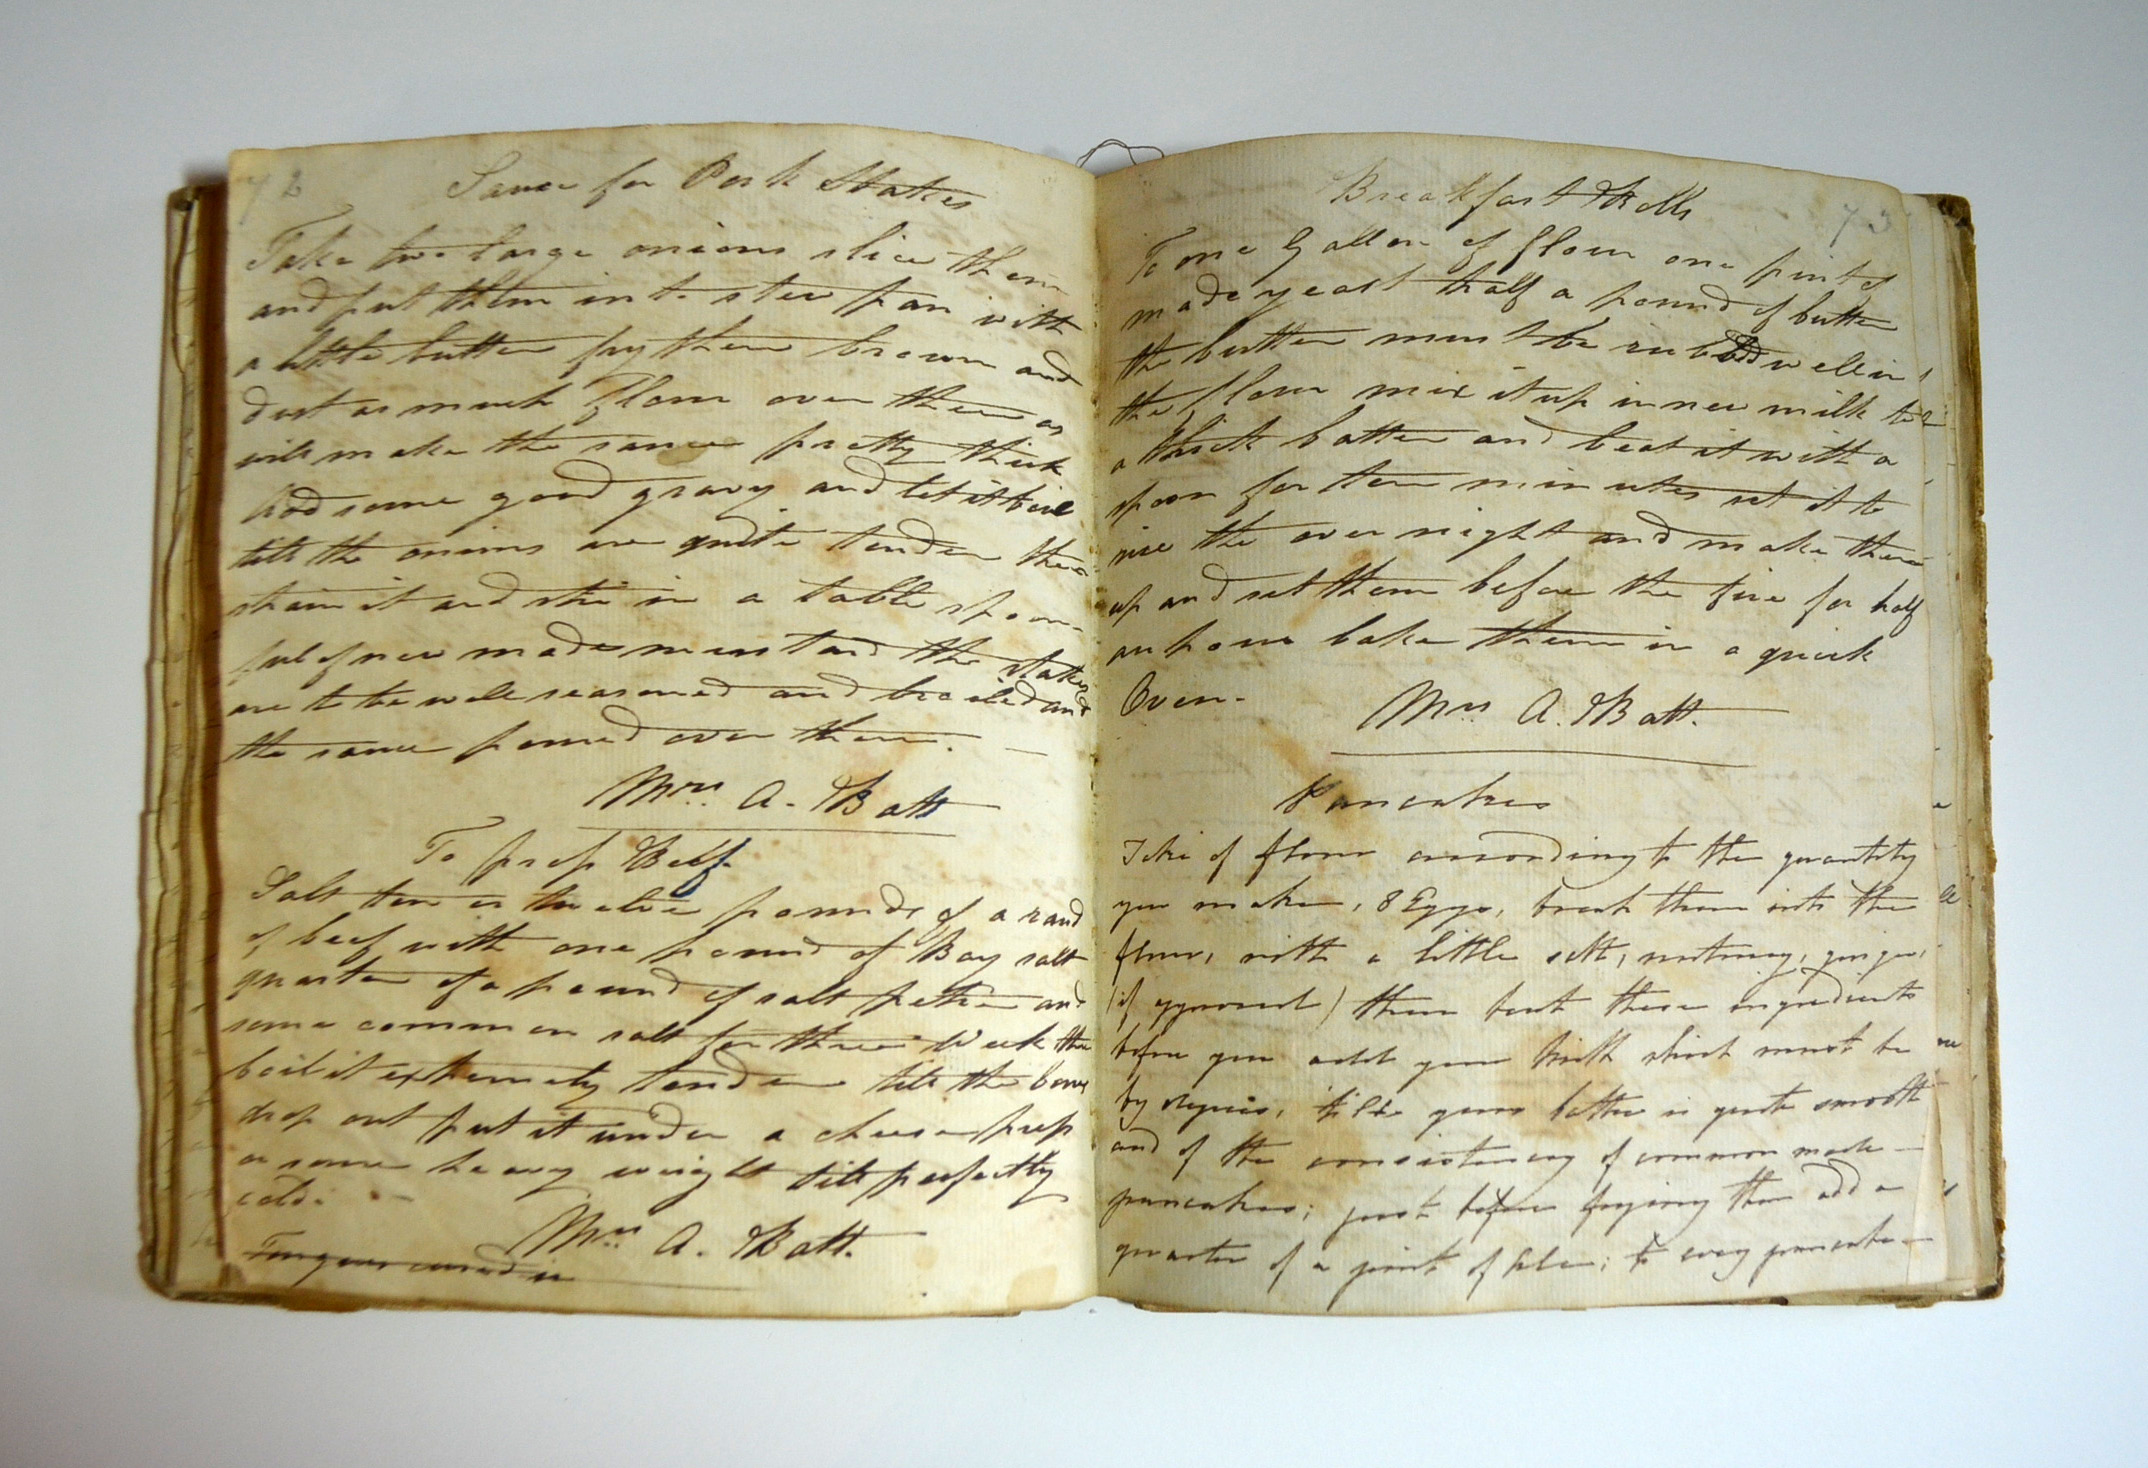 72
Sauce for Pork Stakes
Take two large onions slice them
and put them into stew pan with
a little butter fry them brown and
dust as much Flour over them as
will make the sauce pretty thick
Add some good gravy and let it boil
till the onions are quite tender then
strain it and stir in a table spoon
ful of new made mustard the stakes
are to be well seasoned and broiled and
the sauce poured over them. —
Mrs. A. Batt
To press Beef
Salt ten or twelve pounds of a rand
of beef with one pound of Bay salt
quarter of a pound of salt petre and
some common salt for three Week then
boil it extremely tender till the bones
drop out put it under a cheese press
or some heavy weight till perfectly
cold. —
Mrs. A. Batt.
Tongues cured in
73
Breakfast Rolls
To one Gallon of flour one pint of
made yeast half a pound of butter
the butter must be rubbed well in
the flour mix it up in new milk to
a thick batter and beat it with a
spoon for ten minutes set it to
rise the over night and make them
up and set them before the fire for half
an hour bake them in a quick
Oven.
Mrs A. Batt.
Pancakes
Take of flour according to the quantity
you make, 8 Eggs, break them into the
flour, with a little salt, nutmeg, ginger,
(if approved) then beat these ingredients
before you add your Milk which must be
by degrees, till your batter is quite smooth
and of the consistency of common made
pancakes; just before frying them add a
quarter of a pint of ; to every pancake